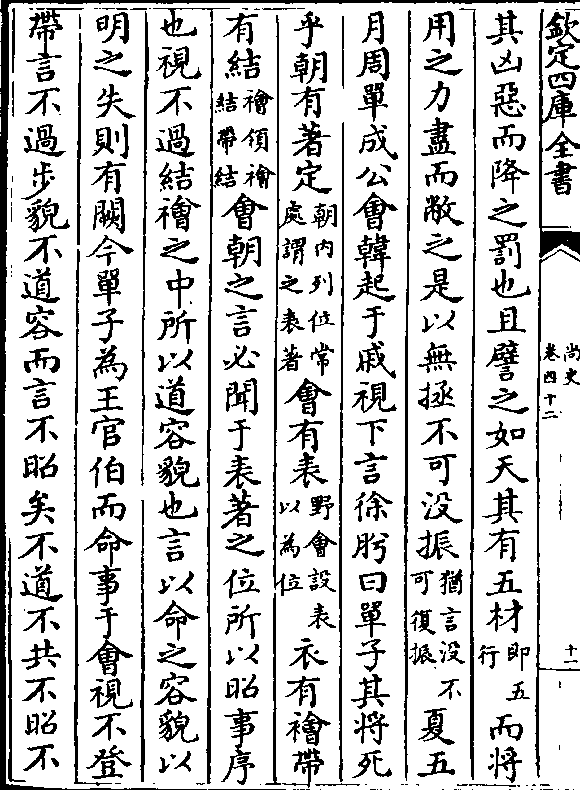 欽定四庫全書
尚史
卷四十二
十一
其凶惡而降之罰也且譬之如天其有五材即五行而將
用之力盡而敝之是以無拯不可没振猶言没不可復振夏五
月周單成公會韓起于戚視下言徐肸曰單子其將死
乎朝有著定朝内列位常處謂之表著會有表野會設表以為位衣有襘帶
有結襘領襘結帶結會朝之言必聞于表著之位所以昭事序
也視不過結襘之中所以道容貌也言以命之容貌以
明之失則有闕今單子為王官伯而命事于會視不登
帶言不過步貌不道容而言不昭矣不道不共不昭不